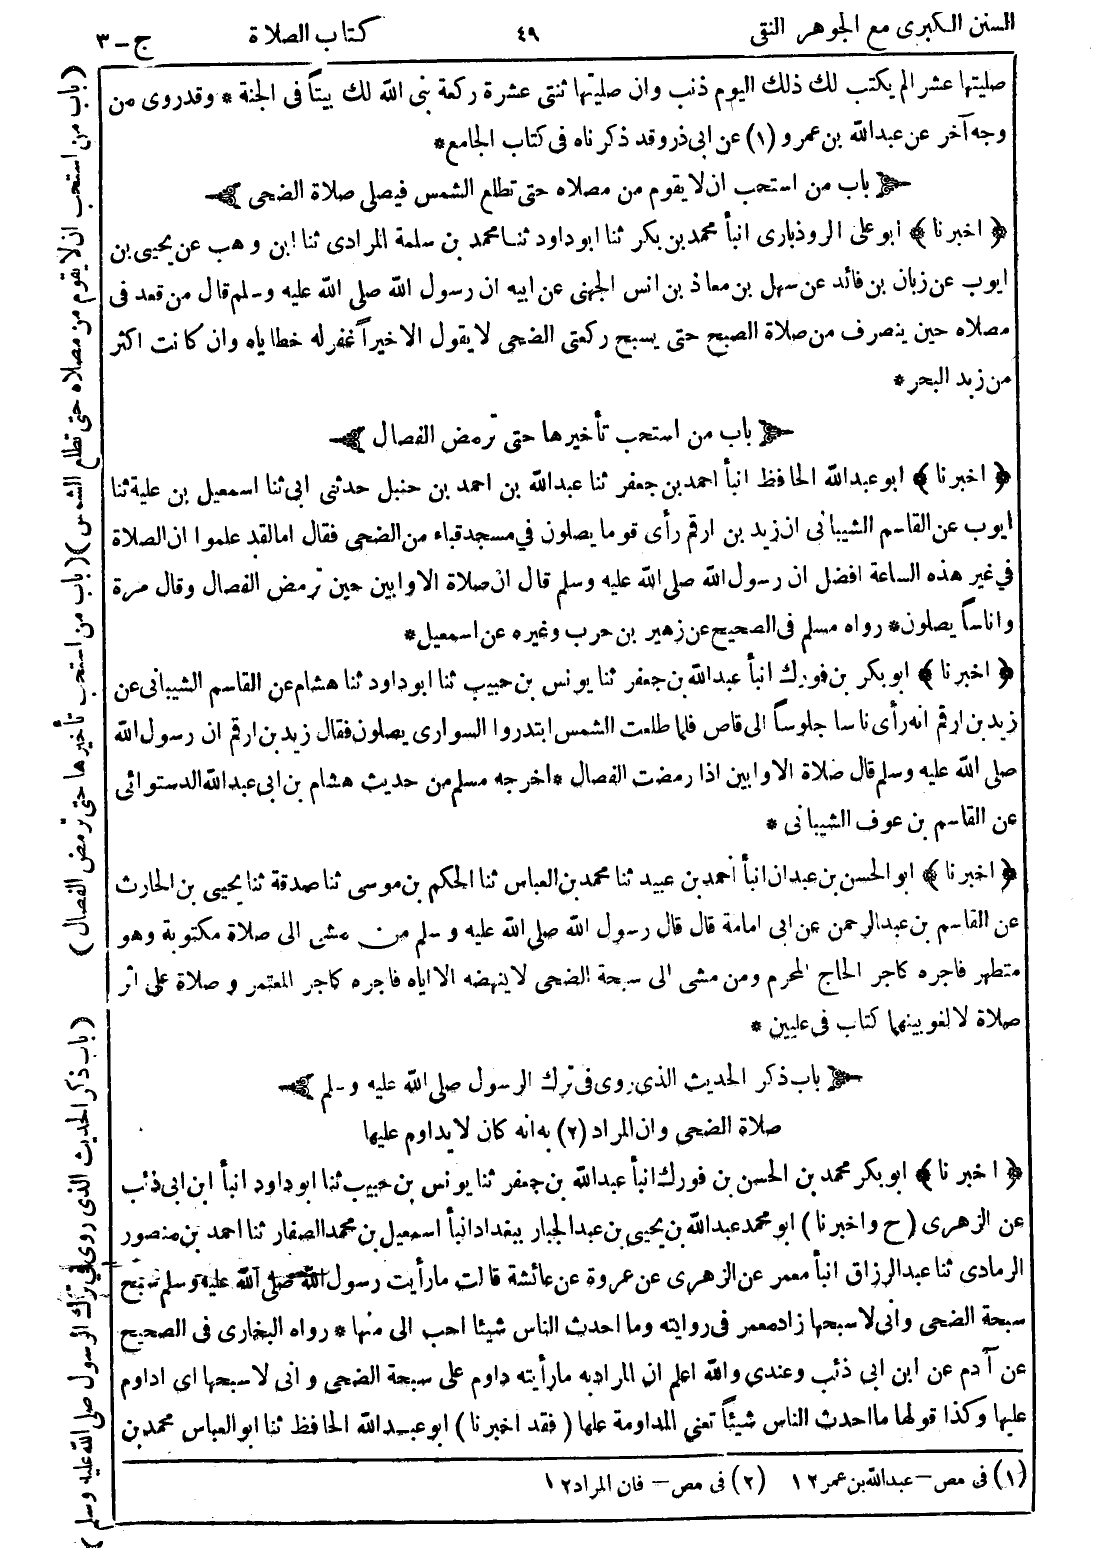 السنن الكبرى مع الجوهر النقى
٤٩
كتاب الصلاة
ج-٣
صليتها عشرا لم يكتب لك ذلك اليوم ذنب وان صليتها ثنتى عشرة ركعة بنى الله لك بيتاً فى الجنة * وقد روى من
وجه آخر عن عبدالله بن عمرو (١) عن ابى ذر وقد ذكرناه فى كتاب الجامع *
باب من استحب ان لا يقوم من مصلاه حتى تطلع الشمس فيصلى صلاة الضحى
﴿ اخبرنا ﴾ ابو على الروذبارى انبأ محمد بن بكر ثنا ابو داود ثنا محمد بن سلمة المرادى ثنا ابن وهب عن يحيى بن
ايوب عن زبان بن فائد عن سهل بن معاذ بن انس الجهنى عن ابيه ان رسول الله صلى الله عليه وسلم قال من قعد فى
مصلاه حين ينصرف من صلاة الصبح حتى يسبح ركعتى الضحى لا يقول الا خيراً غفر له خطاياه وان كانت اكثر
من زبد البحر *
باب من استحب تأخيرها حتى ترمض الفصال
﴿ اخبرنا ﴾ ابو عبدالله الحافظ انبأ احمد بن جعفر ثنا عبدالله بن احمد بن حنبل حدثنى ابى ثنا اسمعيل بن علية ثنا
ايوب عن القاسم الشيبانى ان زيد بن ارقم رأى قوما يصلون في مسجد قباء من الضحى فقال اما لقد علموا ان الصلاة
في غير هذه الساعة افضل ان رسول الله صلى الله عليه وسلم قال ان صلاة الاوابين حين ترمض الفصال وقال مرة
واناساً يصلون * رواه مسلم فى الصحيح عن زهير بن حرب وغيره عن اسمعيل *
﴿ اخبرنا ﴾ ابو بكر بن فورك انبأ عبدالله بن جعفر ثنا يونس بن حبيب ثنا ابو داود ثنا هشام عن القاسم الشيبانى عن
زيد بن ارقم انه رأى ناسا جلوساً الى قاص فلما طلعت الشمس ابتدروا السوارى يصلون فقال زيد بن ارقم ان رسول الله
صلى الله عليه وسلم قال صلاة الاوابين اذا رمضت الفصال * اخرجه مسلم من حديث هشام بن ابى عبدالله الدستوائى
عن القاسم بن عوف الشيبانى *
﴿ اخبرنا ﴾ ابو الحسن بن عبدان انبأ أحمد بن عبيد ثنا محمد بن العباس ثنا الحكم بن موسى ثنا صدقة ثنا يحيى بن الحارث
عن القاسم بن عبدالرحمن عن ابى امامة قال قال رسول الله صلى الله عليه وسلم من مشى الى صلاة مكتوبة وهو
متطهر فاجره كاجر الحاج المحرم ومن مشى الى سبحة الضحى لا ينهضه الا اياه فاجره كاجر المعتمر وصلاة على اثر
صلاة لا لغو بينهما كتاب فى عليين *
باب ذكر الحديث الذى روى فى ترك الرسول صلى الله عليه وسلم
صلاة الضحى وان المراد (٢) به انه كان لا يداوم عليها
﴿ اخبرنا ﴾ ابو بكر محمد بن الحسن بن فورك انبأ عبدالله بن جعفر ثنا يونس بن حبيب ثنا ابو داود انبأ ابن ابى ذئب
عن الزهرى (ح واخبرنا) ابو محمد عبدالله بن يحيى بن عبدالجبار ببغداد انبأ اسمعيل بن محمد الصفار ثنا احمد بن منصور
الرمادى ثنا عبدالرزاق انبأ معمر عن الزهرى عن عروة عن عائشة قالت ما رأيت رسول الله صلى الله عليه وسلم تسبح
سبحة الضحى وانى لاسبحها زاد معمر فى روايته وما احدث الناس شيئا احب الى منها * رواه البخارى فى الصحيح
عن آدم عن ابن ابى ذئب وعندى والله اعلم ان المراد به ما رأيته داوم على سبحة الضحى وانى لاسبحها اى اداوم
عليها وكذا قولها ما احدث الناس شيئاً تعني المداومة عليها (فقد اخبرنا) ابو عبدالله الحافظ ثنا ابو العباس محمد بن
(١) فى مص - عبدالله بن عمر ١٢ (٢) فى مص - فان المراد ١٢
(باب من استحب ان لا يقوم من مصلاه حتى تطلع الشمس) (باب من استحب تأخيرها حتى ترمض الفصال)
(باب ذكر الحديث الذى روى في ترك الرسول صلى الله عليه وسلم)